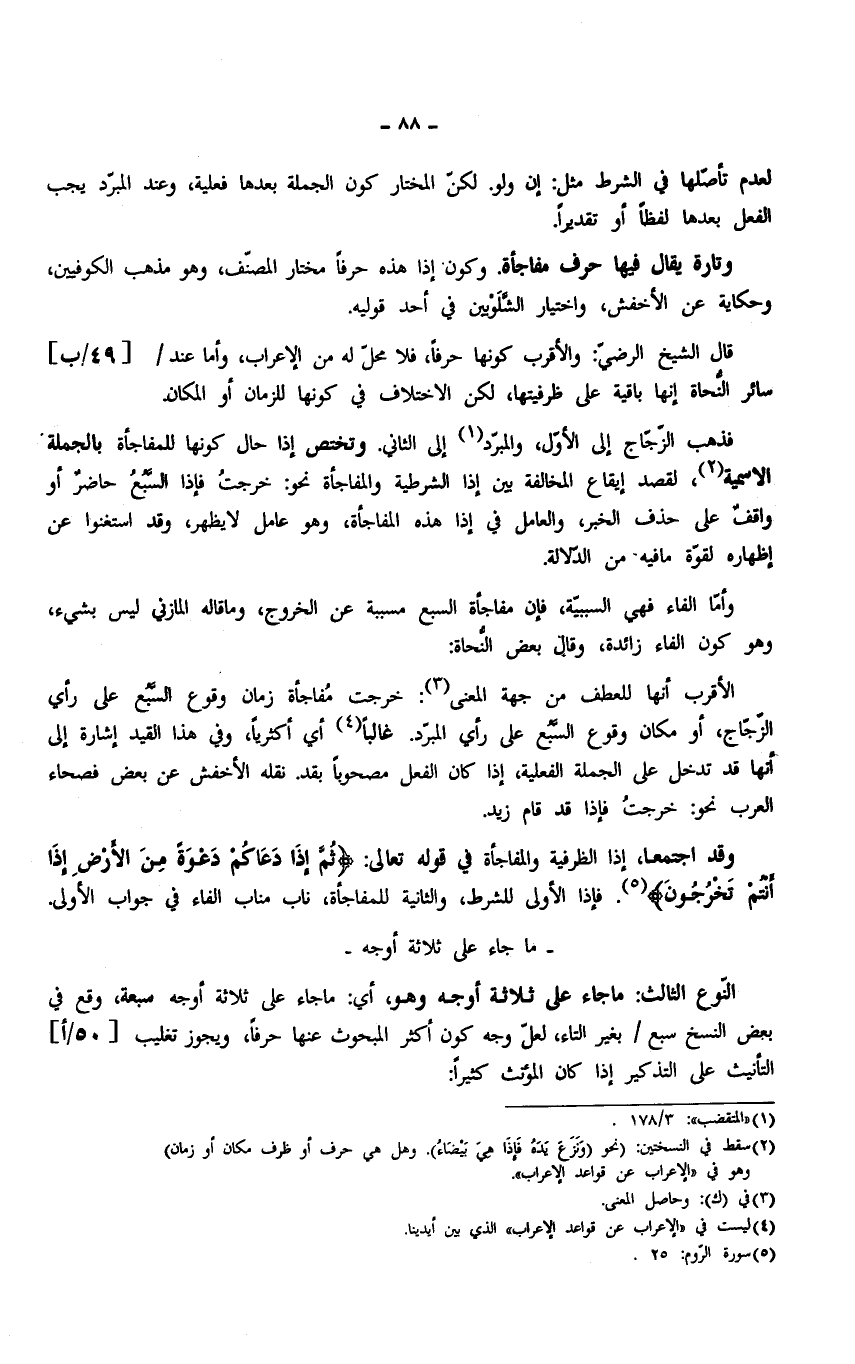 ـ ٨٨ ـ
لعدم تأصّلها في الشرط مثل: إن ولو. لكنّ المختار كون الجملة بعدها فعلية، وعند المبرّد يجب
الفعل بعدها لفظاً أو تقديراً.
وتارة يقال فيها حرف مفاجأة. وكون إذا هذه حرفاً مختار المصنّف، وهو مذهب الكوفيين،
وحكاية عن الأخفش، واختيار الشَّلَوْبين في أحد قوليه.
قال الشيخ الرضيّ: والأقرب كونها حرفاً، فلا محلّ له من الإعراب، وأما عند/ [٤٩/ب]
سائر النُّحاة إنها باقية على ظرفيتها، لكن الاختلاف في كونها للزمان أو المكان.
فذهب الزّجّاج إلى الأوّل، والمبرّد(١) إلى الثاني. وتختص إذا حال كونها للمفاجأة بالجملة
الاسمية(٢)، لقصد إيقاع المخالفة بين إذا الشرطية والمفاجأة نحو: خرجتُ فإذا السَّبُعُ حاضرٌ أو
واقفٌ على حذف الخبر، والعامل في إذا هذه المفاجأة، وهو عامل لايظهر، وقد استغنوا عن
إظهاره لقوّة مافيه من الدّلالة.
وأمّا الفاء فهي السببيّة، فإن مفاجأة السبع مسببة عن الخروج، وماقاله المازني ليس بشيء،
وهو كون الفاء زائدة، وقال بعض النُّحاة:
الأقرب أنها للعطف من جهة المعنى(٣): خرجت مُفاجأة زمان وقوع السَّبُع على رأي
الزّجّاج، أو مكان وقوع السَّبُع على رأي المبرّد. غالباً(٤) أي أكثرياً، وفي هذا القيد إشارة إلى
أنها قد تدخل على الجملة الفعلية، إذا كان الفعل مصحوباً بقد. نقله الأخفش عن بعض فصحاء
العرب نحو: خرجتُ فإذا قد قام زيد.
وقد اجتمعـا، إذا الظرفية والمفاجأة في قوله تعالى: ﴿ثُمَّ إِذَا دَعَاكُمْ دَعْوَةً مِنَ الأَرْضِ إِذَا
أَنْتُمْ تَخْرُجُونَ﴾(٥). فإذا الأولى للشرط، والثانية للمفاجأة، ناب مناب الفاء في جواب الأولى.
ـ ما جاء على ثلاثة أوجه ـ
النّوع الثالث: ماجاء على ثـلاثـة أوجـه وهـو، أي: ماجاء على ثلاثة أوجه سبعة، وقع في
بعض النسخ سبع / بغير التاء، لعلّ وجه كون أكثر المبحوث عنها حرفاً، ويجوز تغليب [٥٠/أ]
التأنيث على التذكير إذا كان المؤنث كثيراً:
(١)«المقتضب»: ١٧٨/٣ .
(٢)سقط في النسختين: (نحو (وَنَزَعَ يَدَهُ فَإِذَا هِيَ بَيْضَاءُ). وهل هي حرف أو ظرف مكان أو زمان)
وهو في «الإعراب عن قواعد الإعراب».
(٣)في (ك): وحاصل المعنى.
(٤)ليست في «الإعراب عن قواعد الإعراب» الذي بين أيدينا.
(٥)سورة الرّوم: ٢٥ .